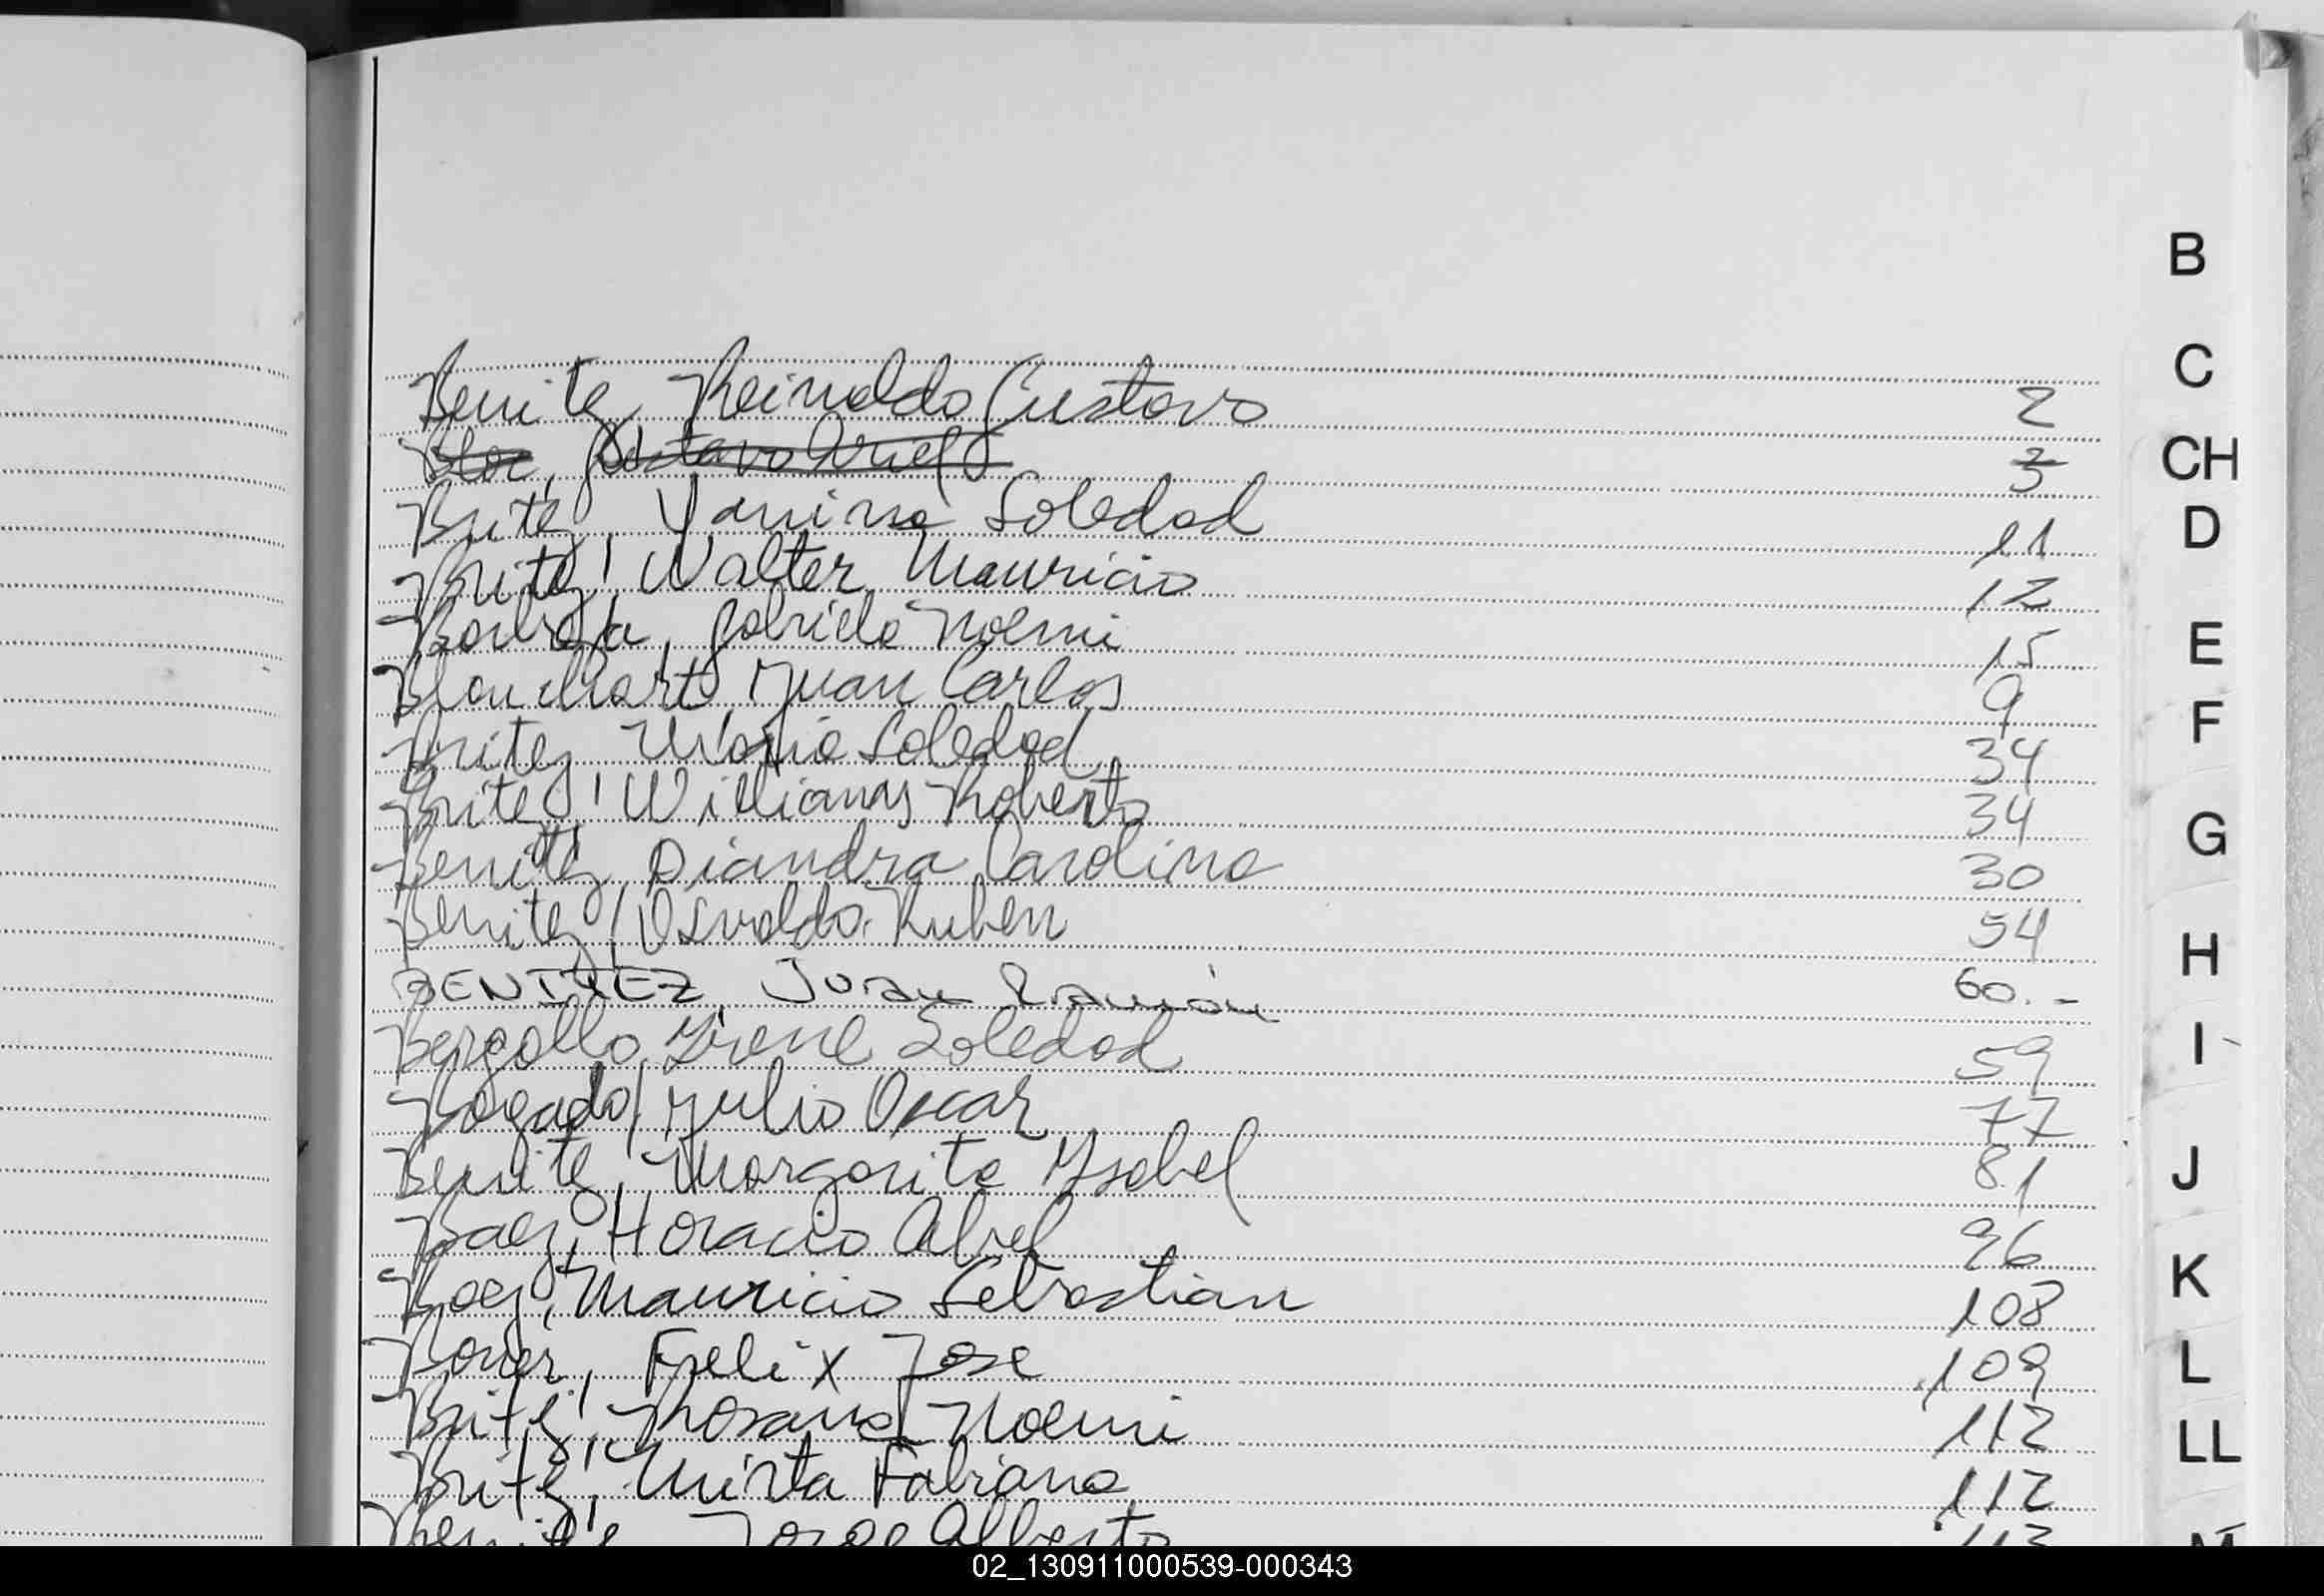 Benitez, Reinaldo Gustavo 2
Gustavo Ariel 3
Britez, Yanina Soledad 11
Britez, Walter Mauricio 12
Barboza, Gabriela Noemi 15
Blanchart, Juan Carlos 9
Britez, Maria Soledad 34
Britez, Willians Roberto 34
Benitez, Diandra Carolina 30
Benitez, Osvaldo Ruben 54
BENITEZ, Juan Ramón 60.-
Bergallo, Yrene Soledad 59
Bogado, Julio Oscar 77
Benitez, Margarita Ysabel 81
Baez, Horacio Abel 96
Baez, Mauricio Sebastian 108
Felix Jose 109
Britez, Rosana Noemi 112
Britez, Mirta Fabiana 112
Benitez, Jorge Alberto 113
B
C
CH
D
E
F
G
H
I
J
K
L
LL
M
02_130911000539-000343